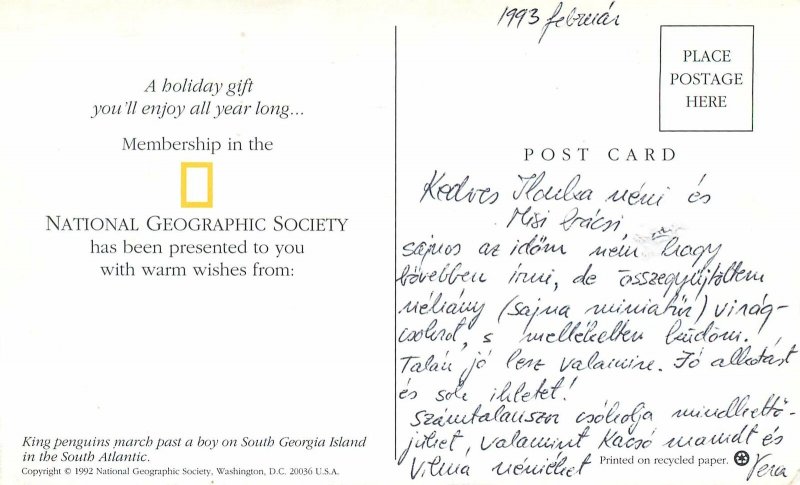 A holiday gift
you'll enjoy all year long...
Membership in the
NATIONAL GEOGRAPHIC SOCIETY
has been presented to you
with warm wishes from:
King penguins march past a boy on South Georgia Island
in the South Atlantic.
Copyright © 1992 National Geographic Society, Washington, D.C. 20036 U.S.A.
1993 február
PLACE
POSTAGE
HERE
POST CARD
Kedves Ilonka néni és
Misi bácsi
sajnos az időm nem hagy
bővebben írni, de összegyűjtöttem
néhány (sajna miniatűr) virág-
csokrot, s mellékelten küldöm.
Talán jó lesz valamire. Jó alkotást
és sok ihletet!
Számtalanszor csókolja mindkettő-
jüket, valamint Kacsó mamát és
Vilma néniéket
Vera
Printed on recycled paper.